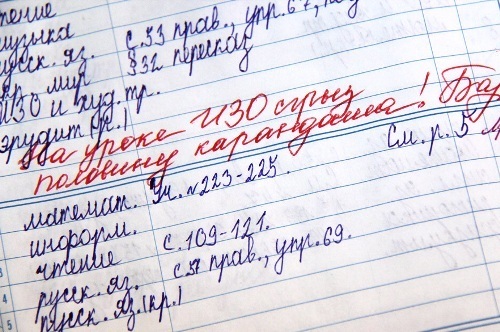 чтение
музыка
русск. яз. с.53 прав., упр.67,
окр. мир §32 пересказ
ИЗО и худ. тр.
эрудит (кр.)
На уроке ИЗО сгрыз
половину карандаша! Ба
математ. Уч. №223-225. См. р. 5
информ.
чтение с.109-121.
русск. яз. с.51 прав., упр.69.
русск. яз. (кр.)
3
4
5